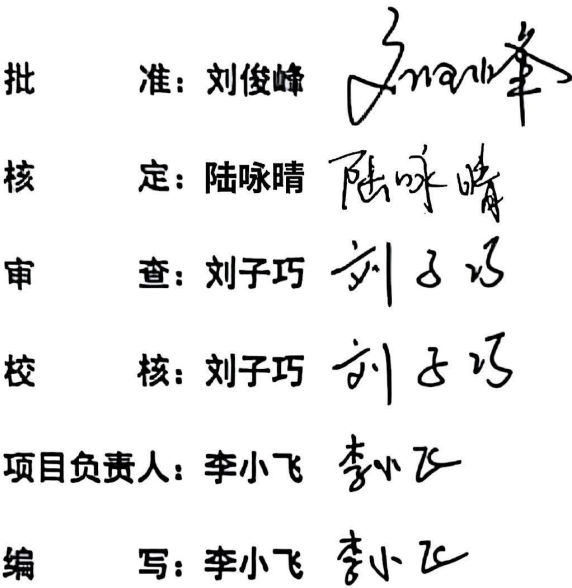 批 准：刘俊峰
核 定：陆咏晴 陆咏晴
审 查：刘子巧 刘子巧
校 核：刘子巧 刘子巧
项目负责人：李小飞 李小飞
编 写：李小飞 李小飞